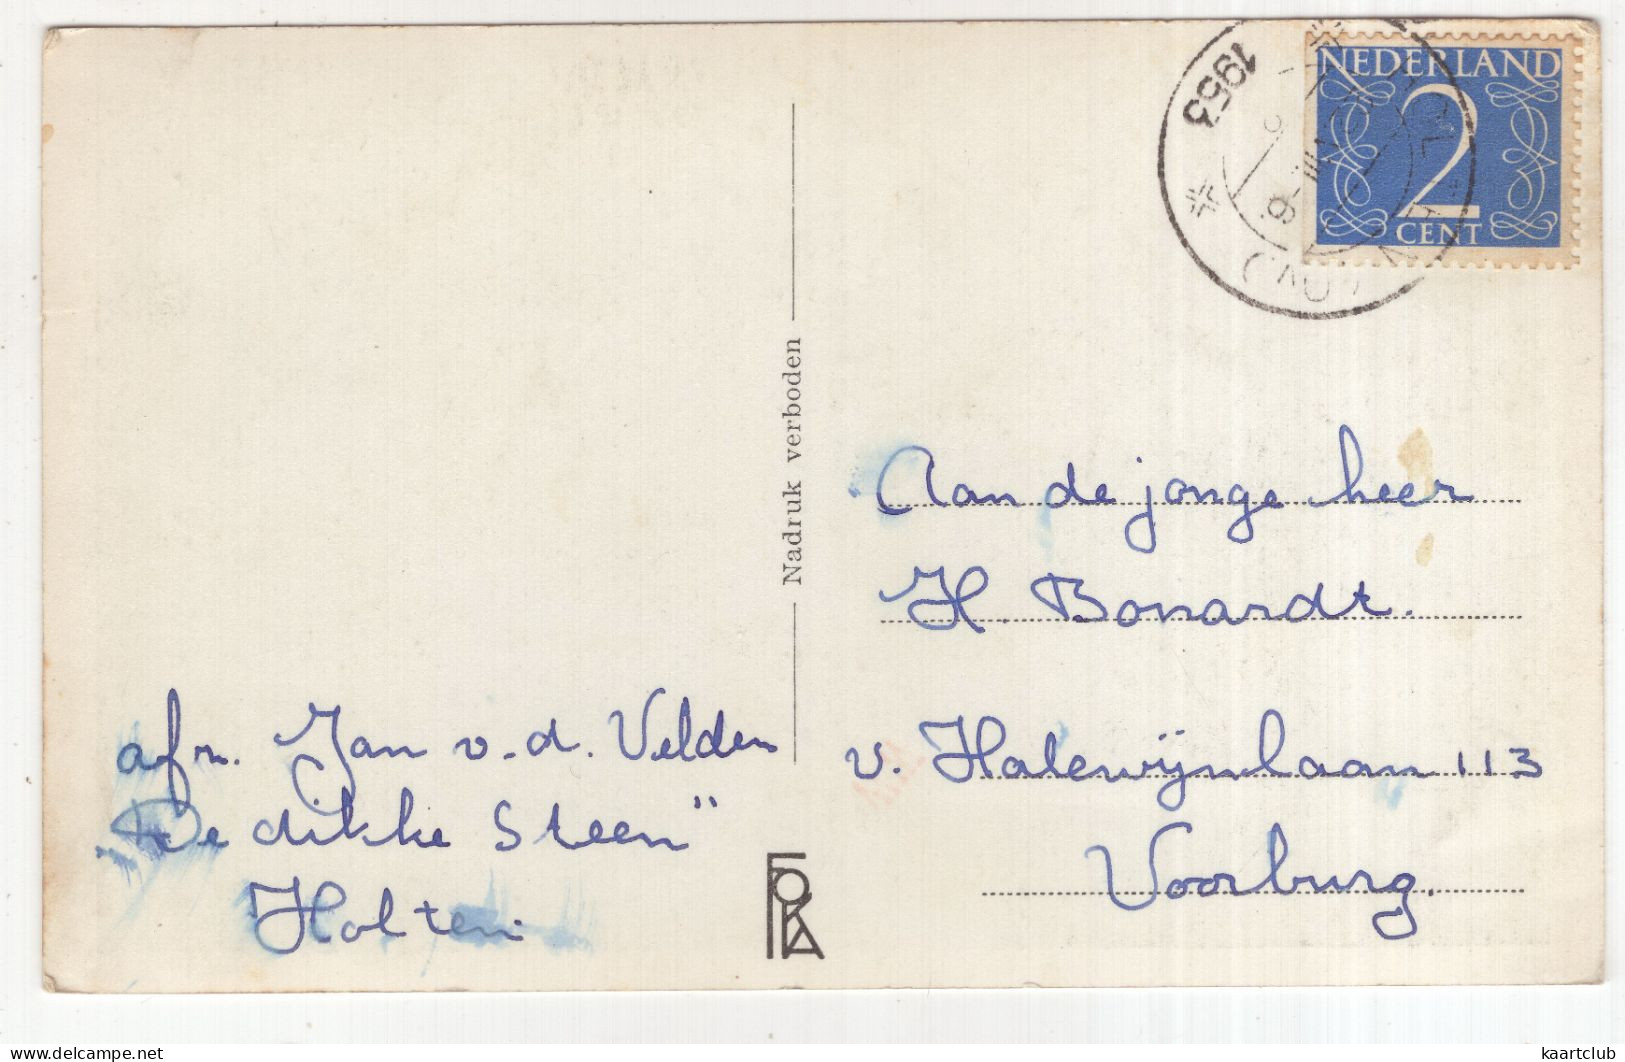 NEDERLAND
2
CENT
1953
Nadruk verboden
Aan de jonge heer
H. Bonardt.
v. Halewijnlaan 113
Voorburg.
afz. Jan v.d. Velden
"De dikke Steen"
Holten
FOKA
kaartclub